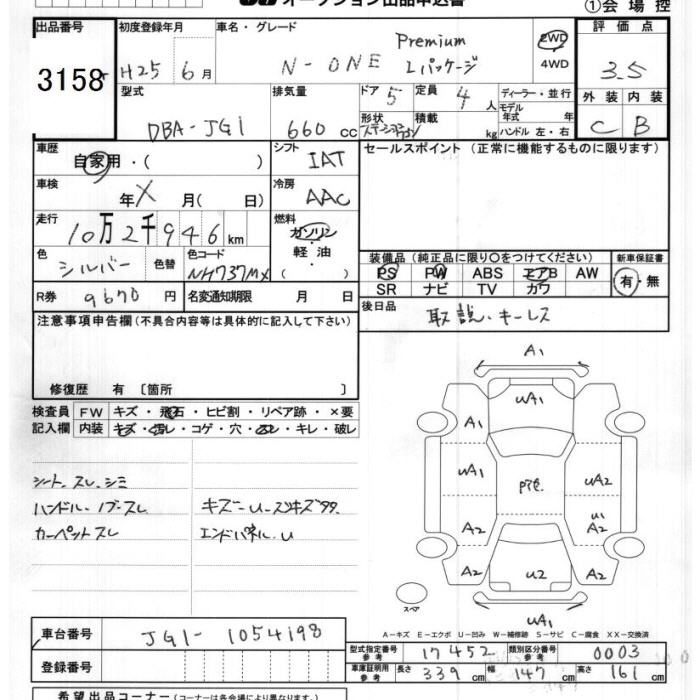 オークション出品申込書
①会場控
出品番号 初度登録年月 車名・グレード 評価点
3158 H25 6月 N-ONE Premium Lパッケージ 2WD 4WD 3.5
型式 排気量 ドア 定員 ディーラー・並行 外装 内装
DBA-JG1 660cc 5 4人 モデル年式 年 C B
形状 積載 kg ハンドル 左・右
車歴 シフト セールスポイント (正常に機能するものに限ります)
自家用・( ) IAT
車検 冷房
年 X 月( 日) AAC
走行 燃料
10万2千946km ガソリン・軽油・( )
色 色替 色コード 装備品(純正品に限り○をつけてください) 新車保証書
シルバー NH737MX PS PW ABS エアB AW 有・無
SR ナビ TV カワ
R券 9670円 名変通知期限 月 日 後日品
取説.キーレス
注意事項申告欄(不具合内容等は具体的に記入して下さい)
修復歴 有 [箇所 ]
検査員 FW キズ・飛石・ヒビ割・リペア跡・×要
記入欄 内装 キズ・汚レ・コゲ・穴・スレ・キレ・破レ
シート.スレ.シミ
ハンドル.ノブ.スレ キズ一U一スリキズ多々.
カーペットスレ エンドパネル.U
A1
UA1
A1
UA1 UA2
U1
A2 A2
A2 U2 A2
UA1
スペア
A-キズ E-エクボ U-凹み W-補修跡 S-サビ C-腐食 XX-交換済
車台番号 JG1-1054198
型式指定番号 参考 17452 類別区分番号 参考 0003
登録番号
車庫証明用 参考 長さ 339cm 幅 147cm 高さ 161cm
希望出品コーナー(コーナーは各会場により異なります。)